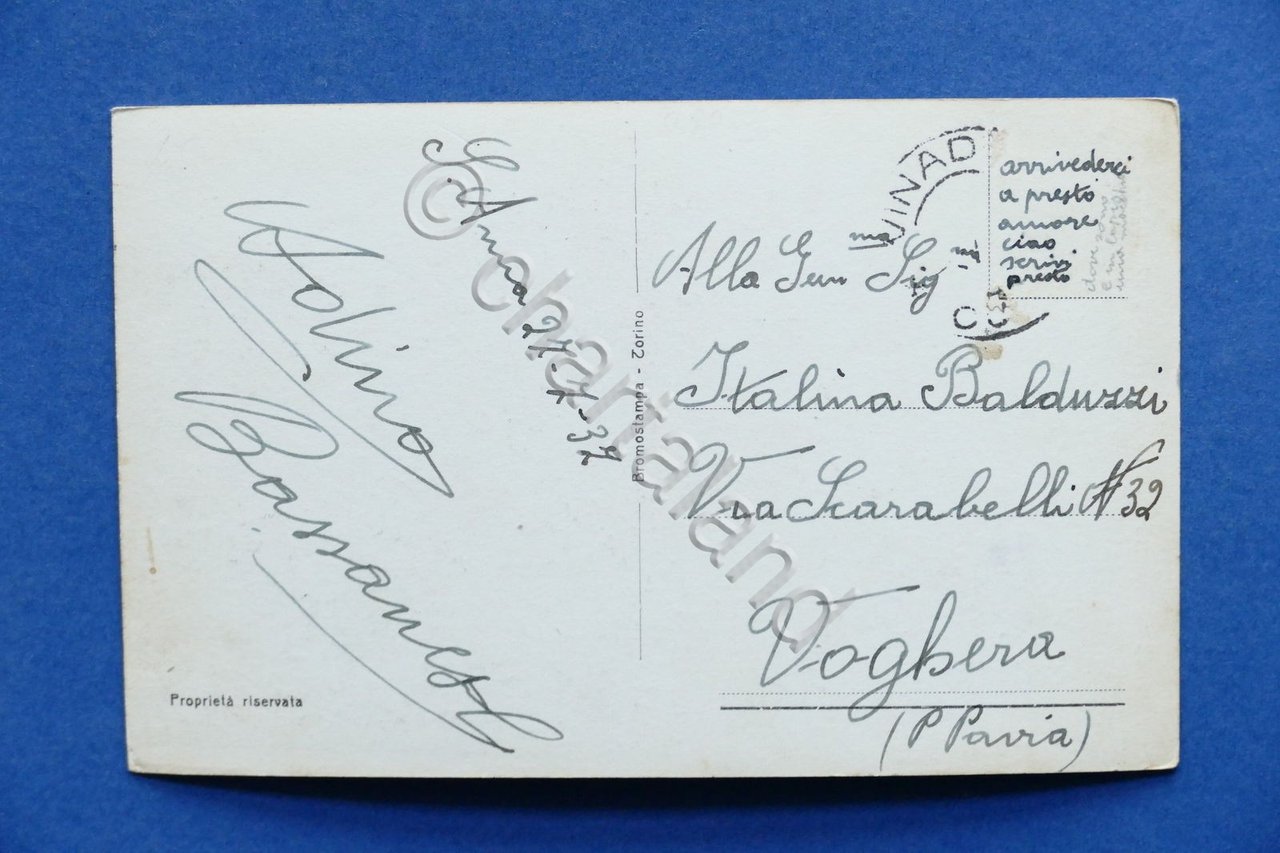 S. Anna 27-7-37
Adino
Proprietà riservata
Bromostampa - Torino
VINAD
arrivederci
a presto
amore
ciao
scrivi
presto
Alla Gen ma Sig na
Italina Balduzzi
Via Scarabelli N 32
Voghera
(P Pavia)
© chartaland